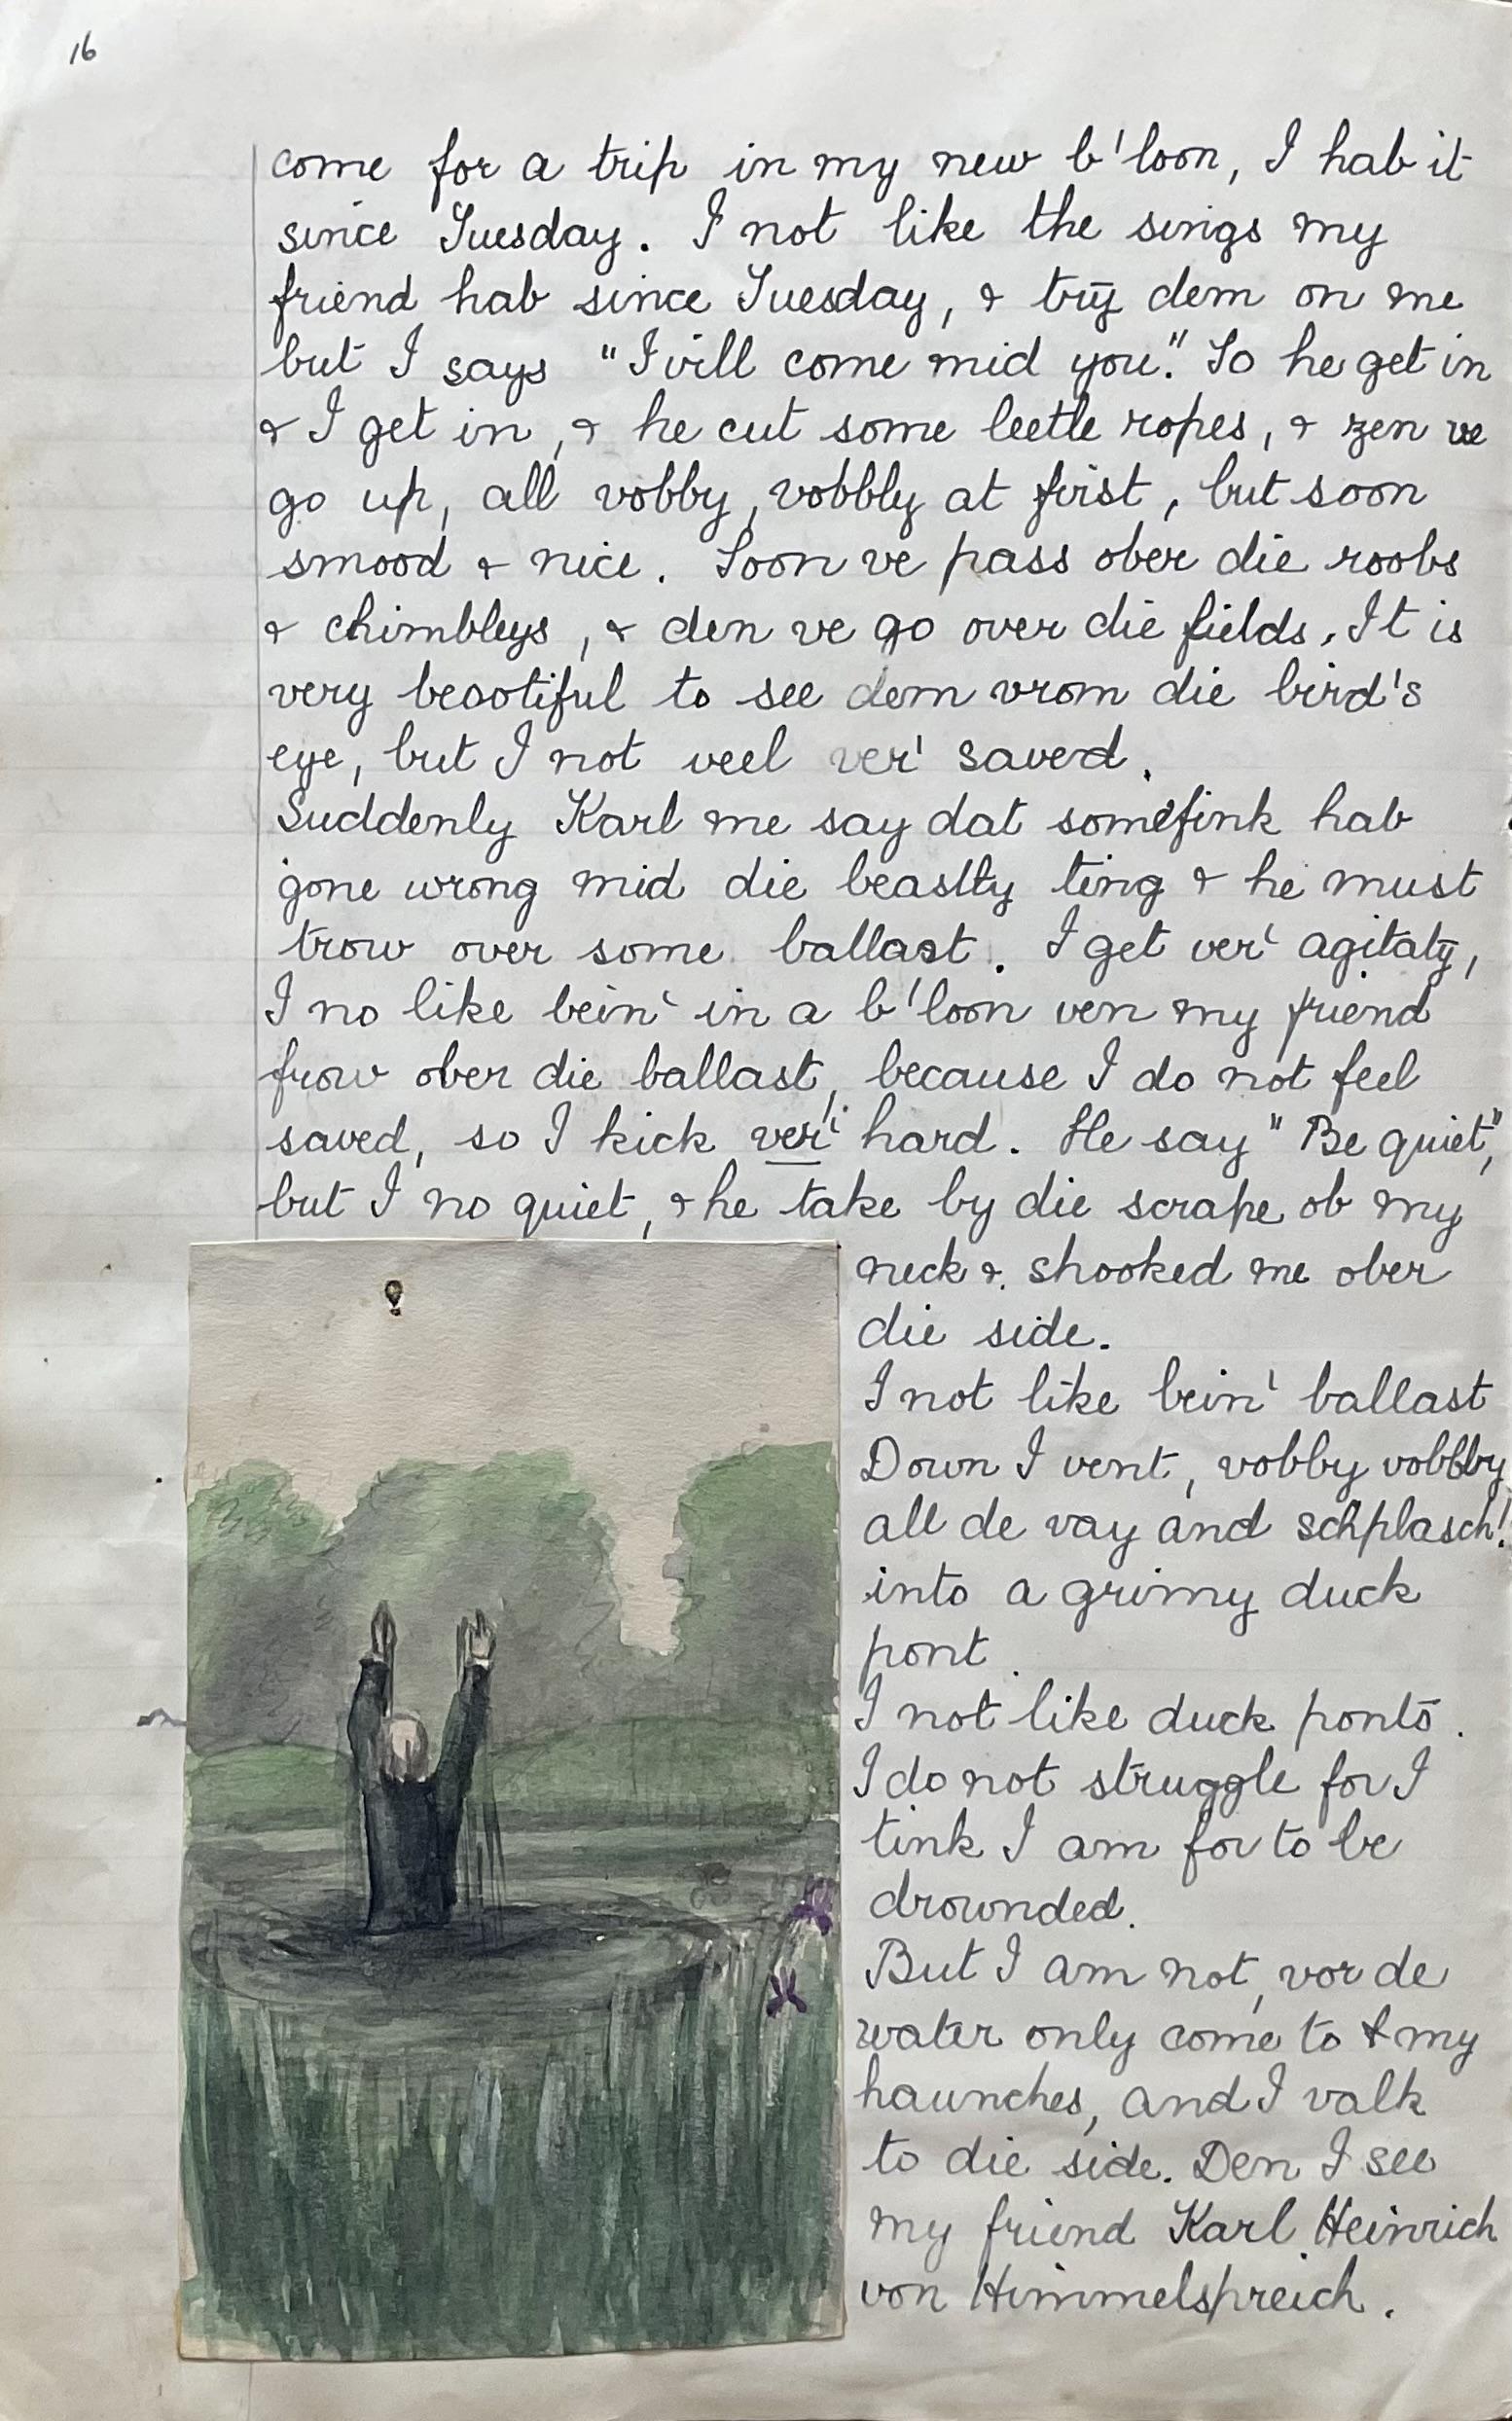 16
come for a trip in my new b'loon, I hab it
since Tuesday. I not like the sings my
friend hab since Tuesday, & try dem on me
but I says "I vill come mid you." So he get in
& I get in, & he cut some leetle ropes, & zen ve
go up, all vobby, vobbly at first, but soon
smood & nice. Soon ve pass ober die roobs
& chimbleys, & den ve go over die fields. It is
very beootiful to see dem vrom die bird's
eye, but I not veel ver' saved.
Suddenly Karl me say dat somefink hab
gone wrong mid die beastly ting & he must
trow over some ballast. I get ver' agitaty,
I no like bein' in a b'loon ven my friend
frow ober die ballast, because I do not feel
saved, so I kick ver' hard. He say "Be quiet",
but I no quiet, & he take by die scrape ob my
neck & shooked me ober
die side.
I not like bein' ballast
Down I vent, vobby vobbly
all de vay and schplasch!
into a grimy duck
pont.
I not like duck ponts.
I do not struggle for I
tink I am for to be
drownded.
But I am not, vor de
water only come to my
haunches, and I valk
to die side. Den I see
my friend Karl Heinrich
von Himmelspreich.